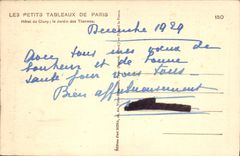 LES PETITS TABLEAUX DE PARIS
Hôtel de Cluny : le Jardin des Thermes.
150
Décembre 1929
Avec tous mes vœux de
bonheur et de bonne
santé pour vous tous
Bien affectueusement